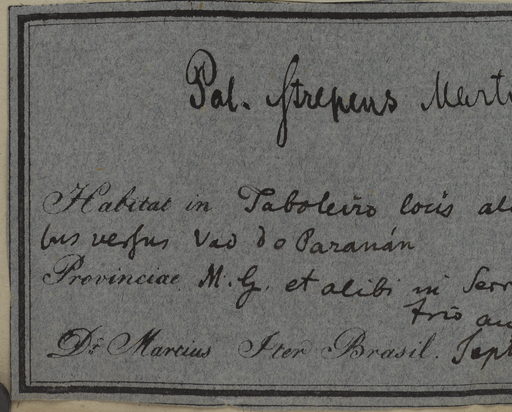 Pal. strepens Mart
Habitat in Taboleiro locis al
bus versus Vao do Paranán
Provinciae M. G. et alibi in Serr
trio au
Dr. Martius Iter Brasil. Sept